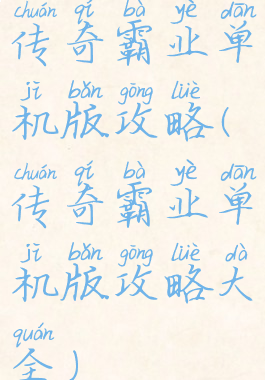 chuán qí bà yè dān
传奇霸业单
jī bǎn gōng lüè
机版攻略(
chuán qí bà yè dān
传奇霸业单
jī bǎn gōng lüè dà
机版攻略大
quán
全)